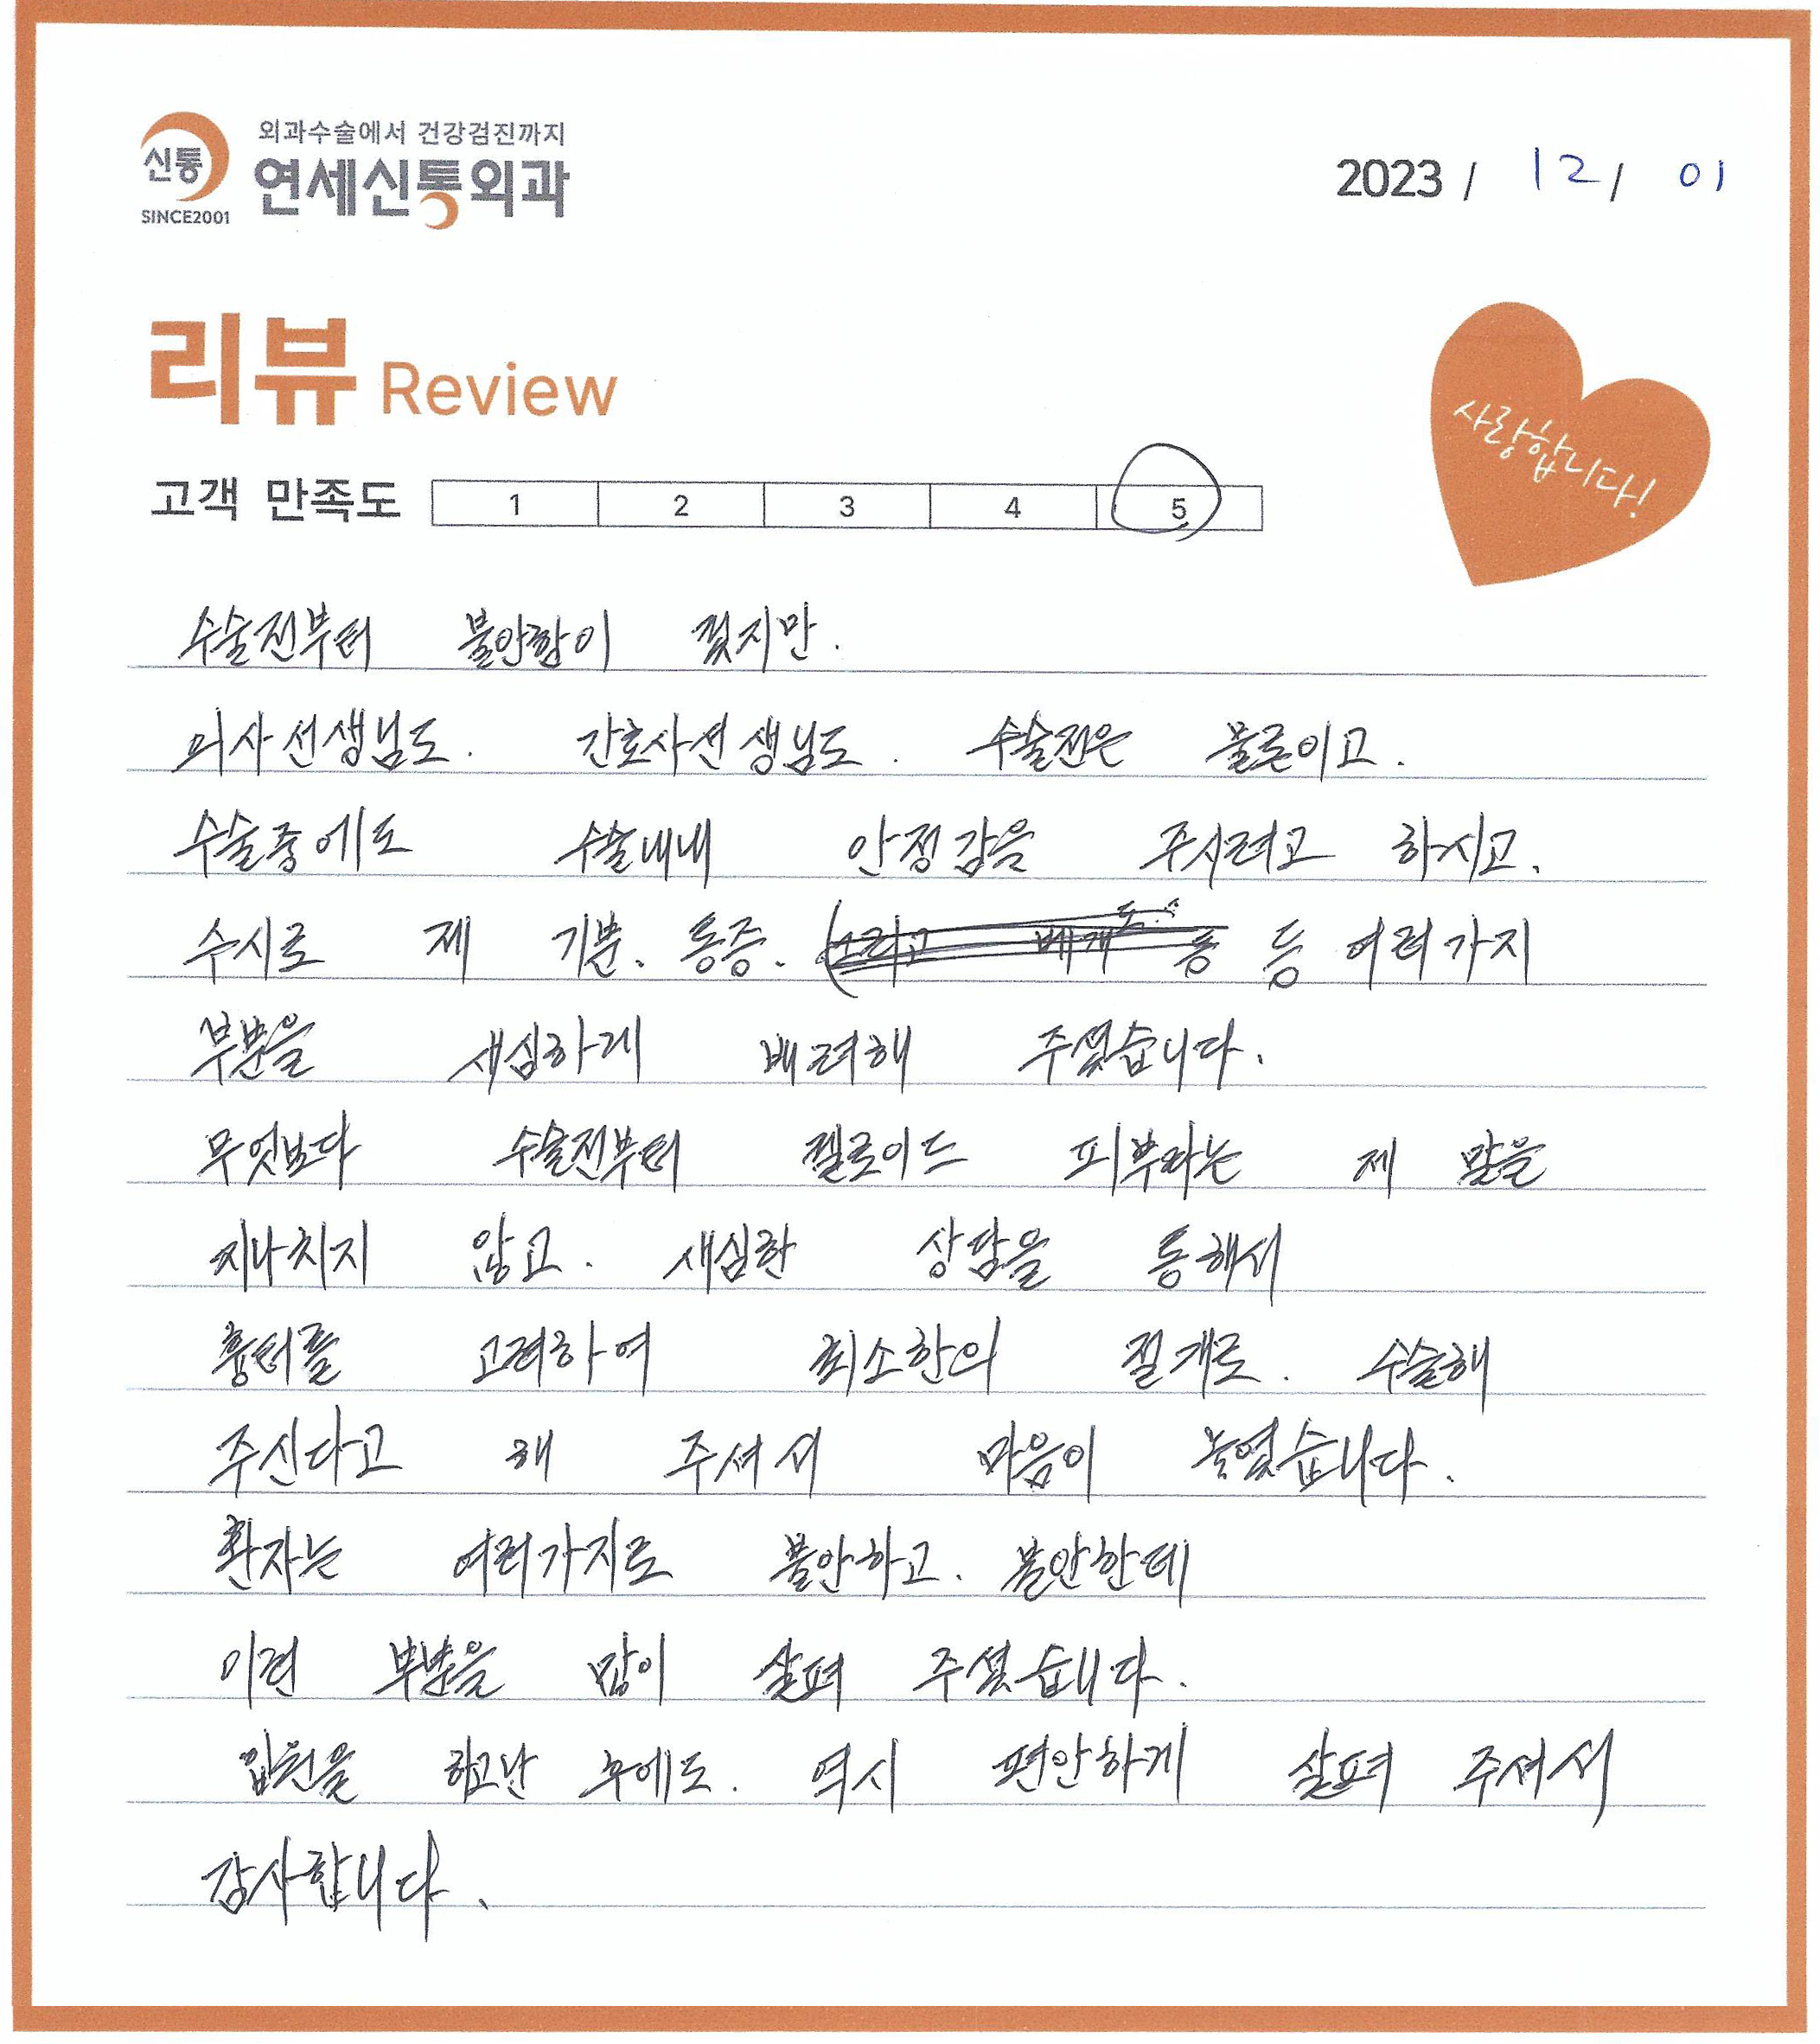 외과수술에서 건강검진까지
신통
연세신통외과
SINCE2001
2023 / 12 / 01
리뷰 Review
사랑합니다!
고객 만족도 1 2 3 4 5
수술전부터 불안함이 컸지만.
의사선생님도. 간호사선생님도. 수술전은 물론이고.
수술중에도 수술내내 안정감을 주시려고 하시고.
수시로 제 기분. 통증. 등 여러가지
부분을 새심하게 배려해 주셨습니다.
무엇보다 수술전부터 켈로이드 피부라는 제 말을
지나치지 않고. 새심한 상담을 통해서
흉터를 고려하여 최소한의 절개로. 수술해
주신다고 해 주셔서 마음이 놓였습니다.
환자는 여러가지로 불안하고. 불안한데
이런 부분을 많이 살펴 주셨습니다.
입원을 하고난 후에도. 역시 편안하게 살펴 주셔서
감사합니다.